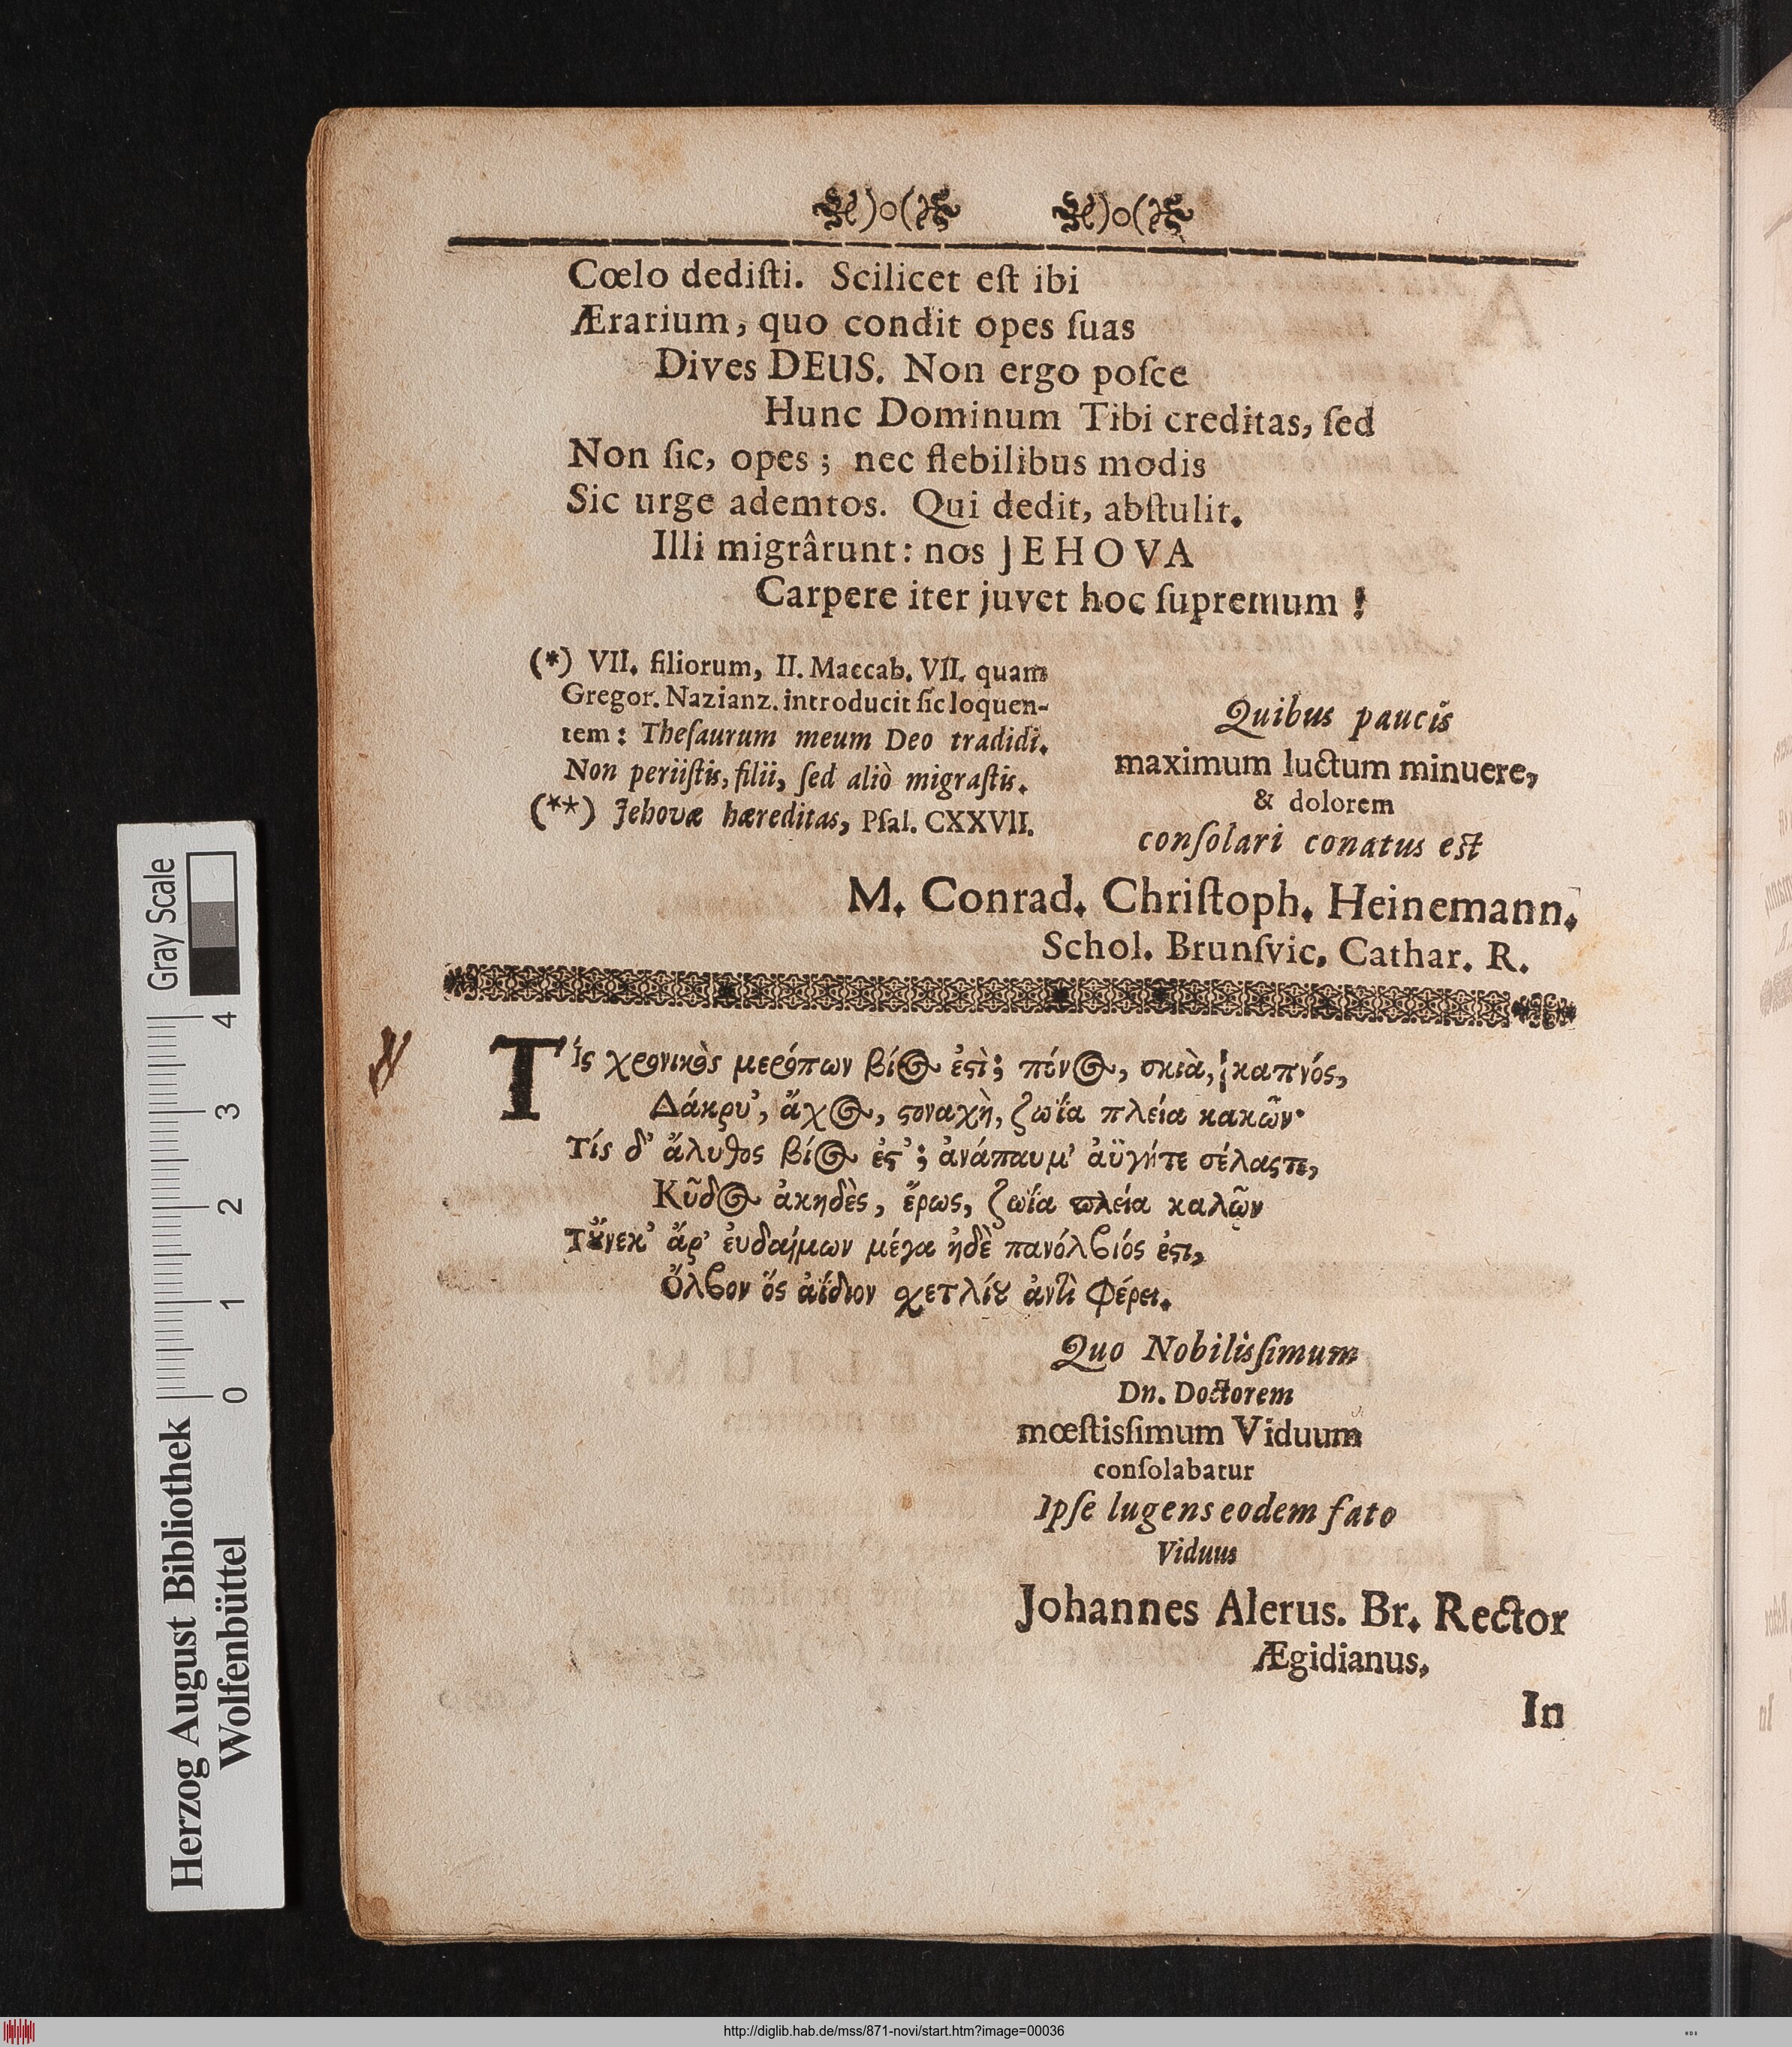 Cœlo dediſti. Scilicet eſt ibi
Ærarium, quo condit opes ſuas
Dives DEUS. Non ergo poſce
Hunc Dominum Tibi creditas, ſed
Non ſic, opes; nec flebilibus modis
Sic urge ademtos. Qui dedit, abſtulit.
Illi migrârunt: nos JEHOVA
Carpere iter juvet hoc ſupremum!
(*) VII. filiorum, II. Maccab. VII. quam
Gregor. Nazianz. introducit ſic loquen-
tem: Theſaurum meum Deo tradidi.
Non periiſtis, filii, ſed aliò migraſtis.
(**) Jehovæ hæreditas, Pſal. CXXVII.
Quibus paucis
maximum luctum minuere,
& dolorem
conſolari conatus eſt
M. Conrad. Chriſtoph. Heinemann.
Schol. Brunſvic. Cathar. R.
Τίς χρονικὸς μερόπων βίος ἐϛὶ; πόνος, σκιὰ, καπνός,
Δάκρυ', ἄχος, ϛοναχὴ, ζωΐα πλεία κακῶν·
Τίς δ' ἄλυθος βίος ἐϛ'; ἀνάπαυμ' ἀϋγήτε σέλαϛτε,
Κῦδος ἀκηδὲς, ἔρως, ζωΐα πλεία καλῶν
Τȣ̃νεκ' ἄρ' ἐυδαίμων μέγα ἠδὲ πανόλβιός ἐϛι,
Ὄλβον ὅς ἀΐδιον χετλίȣ ἀντὶ φέρει.
Quo Nobilisſimum
Dn. Doctorem
mœſtisſimum Viduum
conſolabatur
Ipſe lugens eodem fato
Viduus
Johannes Alerus. Br. Rector
Ægidianus,
In
Gray Scale
4
3
2
1
0
Herzog August Bibliothek
Wolfenbüttel
http://diglib.hab.de/mss/871-novi/start.htm?image=00036